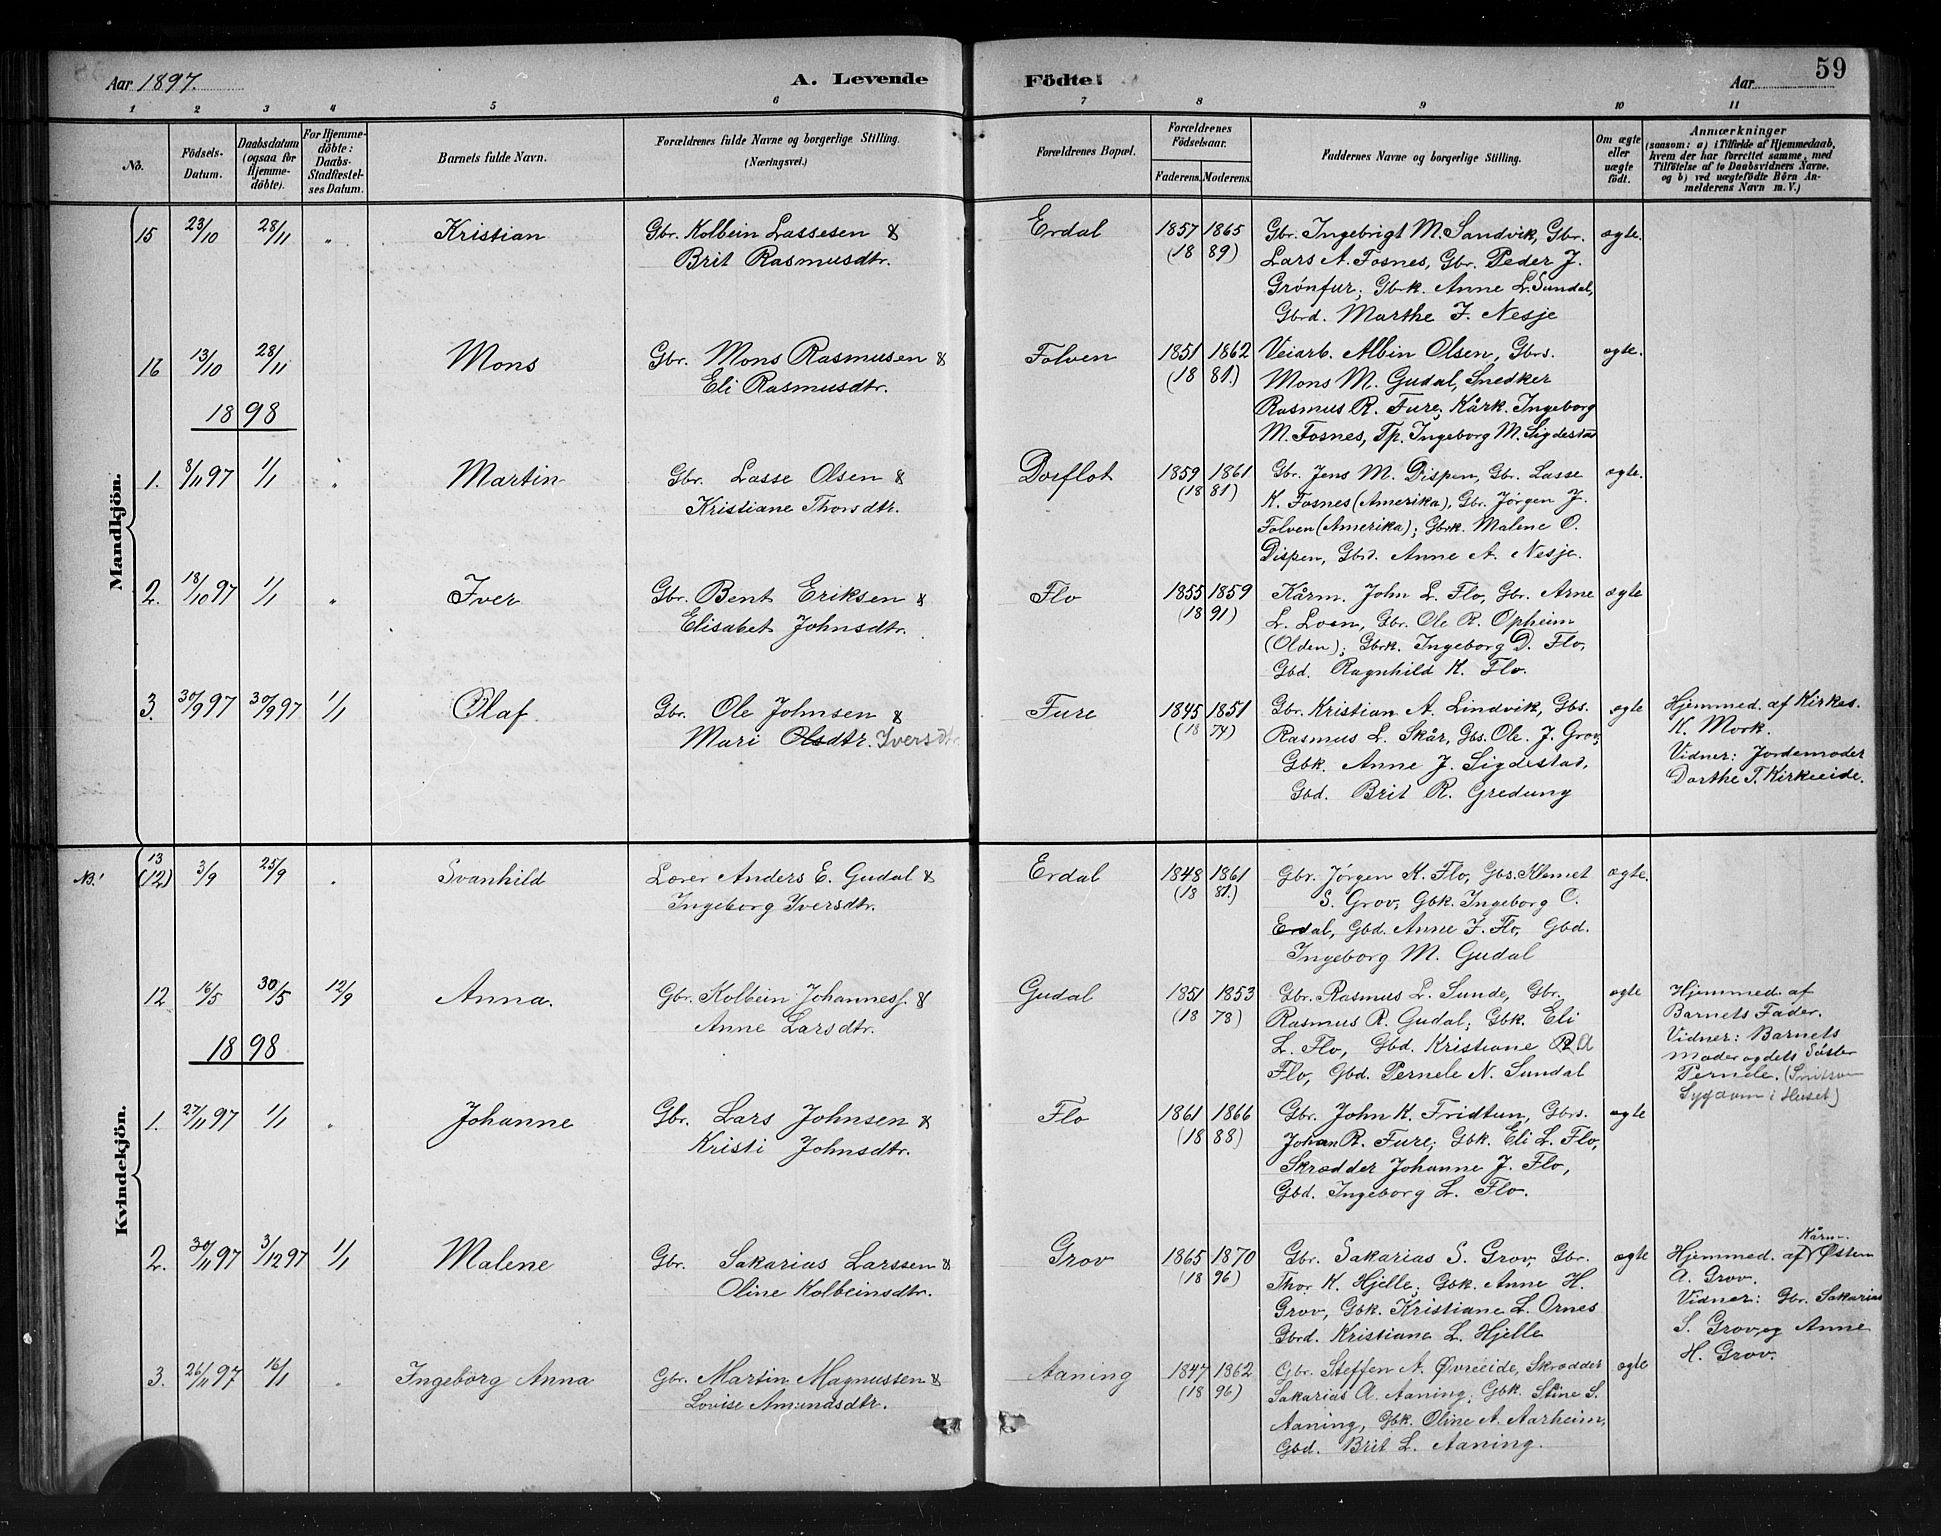 Aar 1897. A. Levende Födte. Aar 59
1 2 3 4 5 6 7 8 9 10 11
No.
Födsels-Datum.
Daabsdatum (ogsaa for Hjemme-döbte).
For Hjemme-döbte: Daabs-Stadfæstel-ses Datum.
Barnets fulde Navn.
Forældrenes fulde Navne og borgerlige Stilling. (Næringsvei.)
Forældrenes Bopæl.
Forældrenes Födselsaar.
Faderens. Moderens.
Faddernes Navne og borgerlige Stilling.
Om ægte eller uægte födt.
Anmærkninger
(saasom: a) i Tilfælde af Hjemmedaab,
hvem der har forrettet samme, med
Tilföielse af to Daabsvidners Navne,
og b) ved uægtefödte Börn An-
melderens Navn m. V.)
Mandkjön.
15 23/10 28/11 " Kristian Gbr. Kolbein Lassesen & Erdal 1857 1865 Gbr. Ingebrigt M. Sandvik, Gbr. ægte.
Brit Rasmusdtr. (18 89) Lars A. Fosnes, Gbr. Peder J.
Grønfur; Gbrk. Anne L. Sundal,
Gbrd. Marthe J. Nesje
16 13/10 28/11 Mons Gbr. Mons Rasmusen & Folven 1851 1862 Veiarb. Albin Olsen, Gbrs. ægte.
Eli Rasmusdtr. (18 81.) Mons M. Gudal, Snedker
1898 Rasmus R. Fure; Kårk. Ingeborg
M. Fosnes, Tp. Ingeborg M. Sigdestad
1. 8/11 97 1/1 " Martin Gbr. Lasse Olsen & Dorflot 1859 1861 Gbr. Jens M. Dispen, Gbr. Lasse ægte.
Kristiane Thorsdtr. (18 81) K. Fosnes (Amerika), Gbr. Jørgen J.
Folven (Amerika); Gbrk. Malene O.
Dispen, Gbrd. Anne A. Nesje.
2. 18/10 97 1/1 " Iver Gbr. Bent Eriksen & Flo 1855 1859 Kårm. John L. Flo, Gbr. Arne ægte
Elisabet Johnsdtr. (18 91) L. Loen, Gbr. Ole R. Opheim
(Olden); Gbrk. Ingeborg D. Flo,
Gbd. Ragnhild K. Flo.
3. 30/9 97 30/9 97 1/1 Olaf. Gbr. Ole Johnsen & Fure 1845 1851 Gbr. Kristian A. Lindvik, Gbs. ægte Hjemmed. af Kirkes.
Mari Olsdtr. Iversdtr. (18 74) Rasmus L. Skår, Gbs. Ole J. Grov; K. Mork.
Gbk. Anne J. Sigdestad, Vidner: Jordemoder
Gbd. Brit R. Gredung Dorthe T. Kirkeeide.
Kvindekjön.
NB! 13 (12) 3/9 25/9 " Svanhild Lærer Anders E. Gudal & Erdal 1848 1861 Gbr. Jørgen K. Flo, Gbs. Klemet ægte.
Ingeborg Iversdtr. (18 81.) S. Grov; Gbk. Ingeborg C.
Erdal, Gbd. Anne J. Flo, Gbd.
Ingeborg M. Gudal
12 16/5 30/5 12/9 Anna. Gbr. Kolbein Johanness. & Gudal 1851 1853 Gbr. Rasmus L. Sunde, Gbr. ægte Hjemmed. af
Anne Larsdtr. (18 78) Rasmus R. Gudal; Gbk. Eli Barnets Fader.
1898 L. Flo, Gbd. Kristiane R A Vidner: Barnets
Flo, Gbd. Pernele N. Sundal Moder og dets Søster
Pernele. (Smitsom
Sygdom i Huset)
1. 27/11 97 1/1 " Johanne Gbr. Lars Johnsen & Flo 1861 1866 Gbr. John K. Fridtun, Gbrs. ægte
Kristi Johnsdtr. (18 88) Johan R. Fure; Gbk. Eli L. Flo,
Skrædder Johanne J. Flo,
Gbd. Ingeborg L. Flo.
2. 30/11 97 3/12 97 1/1 Malene Gbr. Sakarias Larssen & Grov 1865 1870 Gbr. Sakarias S. Grov, Gbr. ægte Hjemmed. af Kårm. Østen
Oline Kolbeinsdtr. (18 96) Thor K. Hjelle; Gbk. Anne H. A. Grov.
Grov, Gbk. Kristiane L. Ornes Vidner: Gbr. Sakarias
Gbrd. Kristiane L. Hjelle S. Grov og Anne
H. Grov.
3. 26/11 97 16/1 " Ingeborg Anna Gbr. Martin Magnussen & Aaning 1847 1862 Gbr. Steffen A. Øvreeide, Skrædder ægte
Lovise Amundsdtr. (18 96) Sakarias A. Aaning; Gbk. Stine S.
Aaning, Gbk. Oline A. Aarheim,
Gbd. Brit L. Aaning.